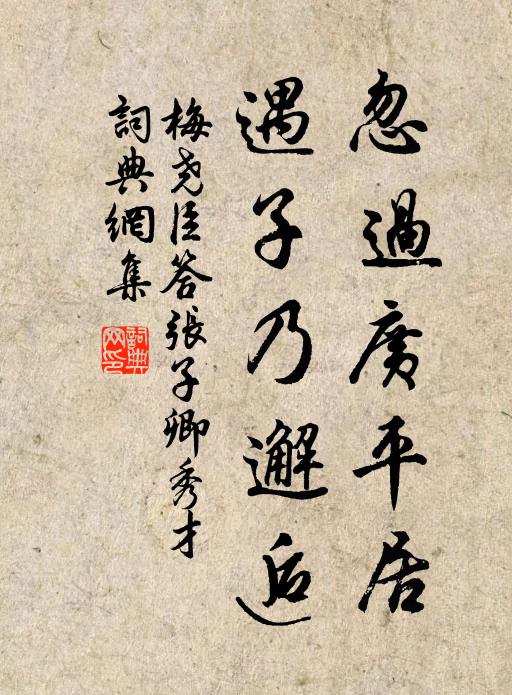 忽過廣平居
遇子乃邂逅
梅尧臣答張子卿秀才
詞典網集
詞典网印